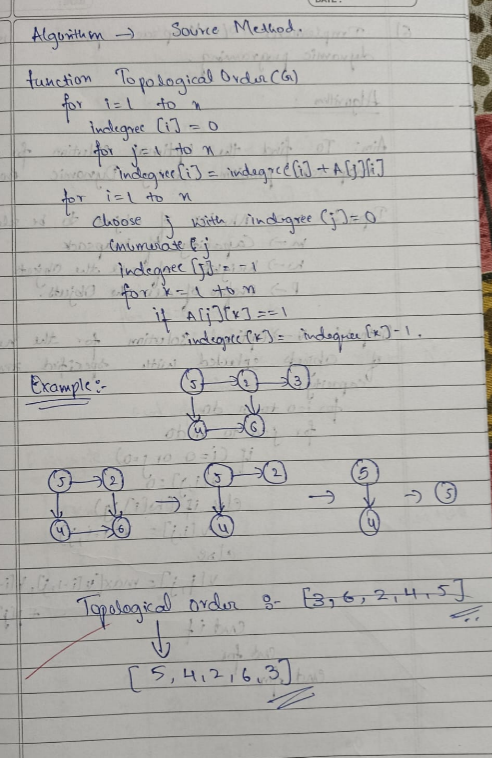 Algorithm → Source Method.
function Topological Order (G)
for i=1 to n
indegree [i] = 0
for j=1 to n
indegree[i] = indegree[i] + A[j][i]
for i=1 to n
choose j with indegree (j]=0
enumerate j
indegree [j] = -1
for k=1 to n
if A[j][k]==1
indegree[k] = indegree [k]-1.
Example:-
5 → 2 → 3
4 → 6
5 → 2 → 5 → 2 → 5 → 5
4 → 6 4 4
Topological order :- [3, 6, 2, 4, 5]
[5, 4, 2, 6, 3]